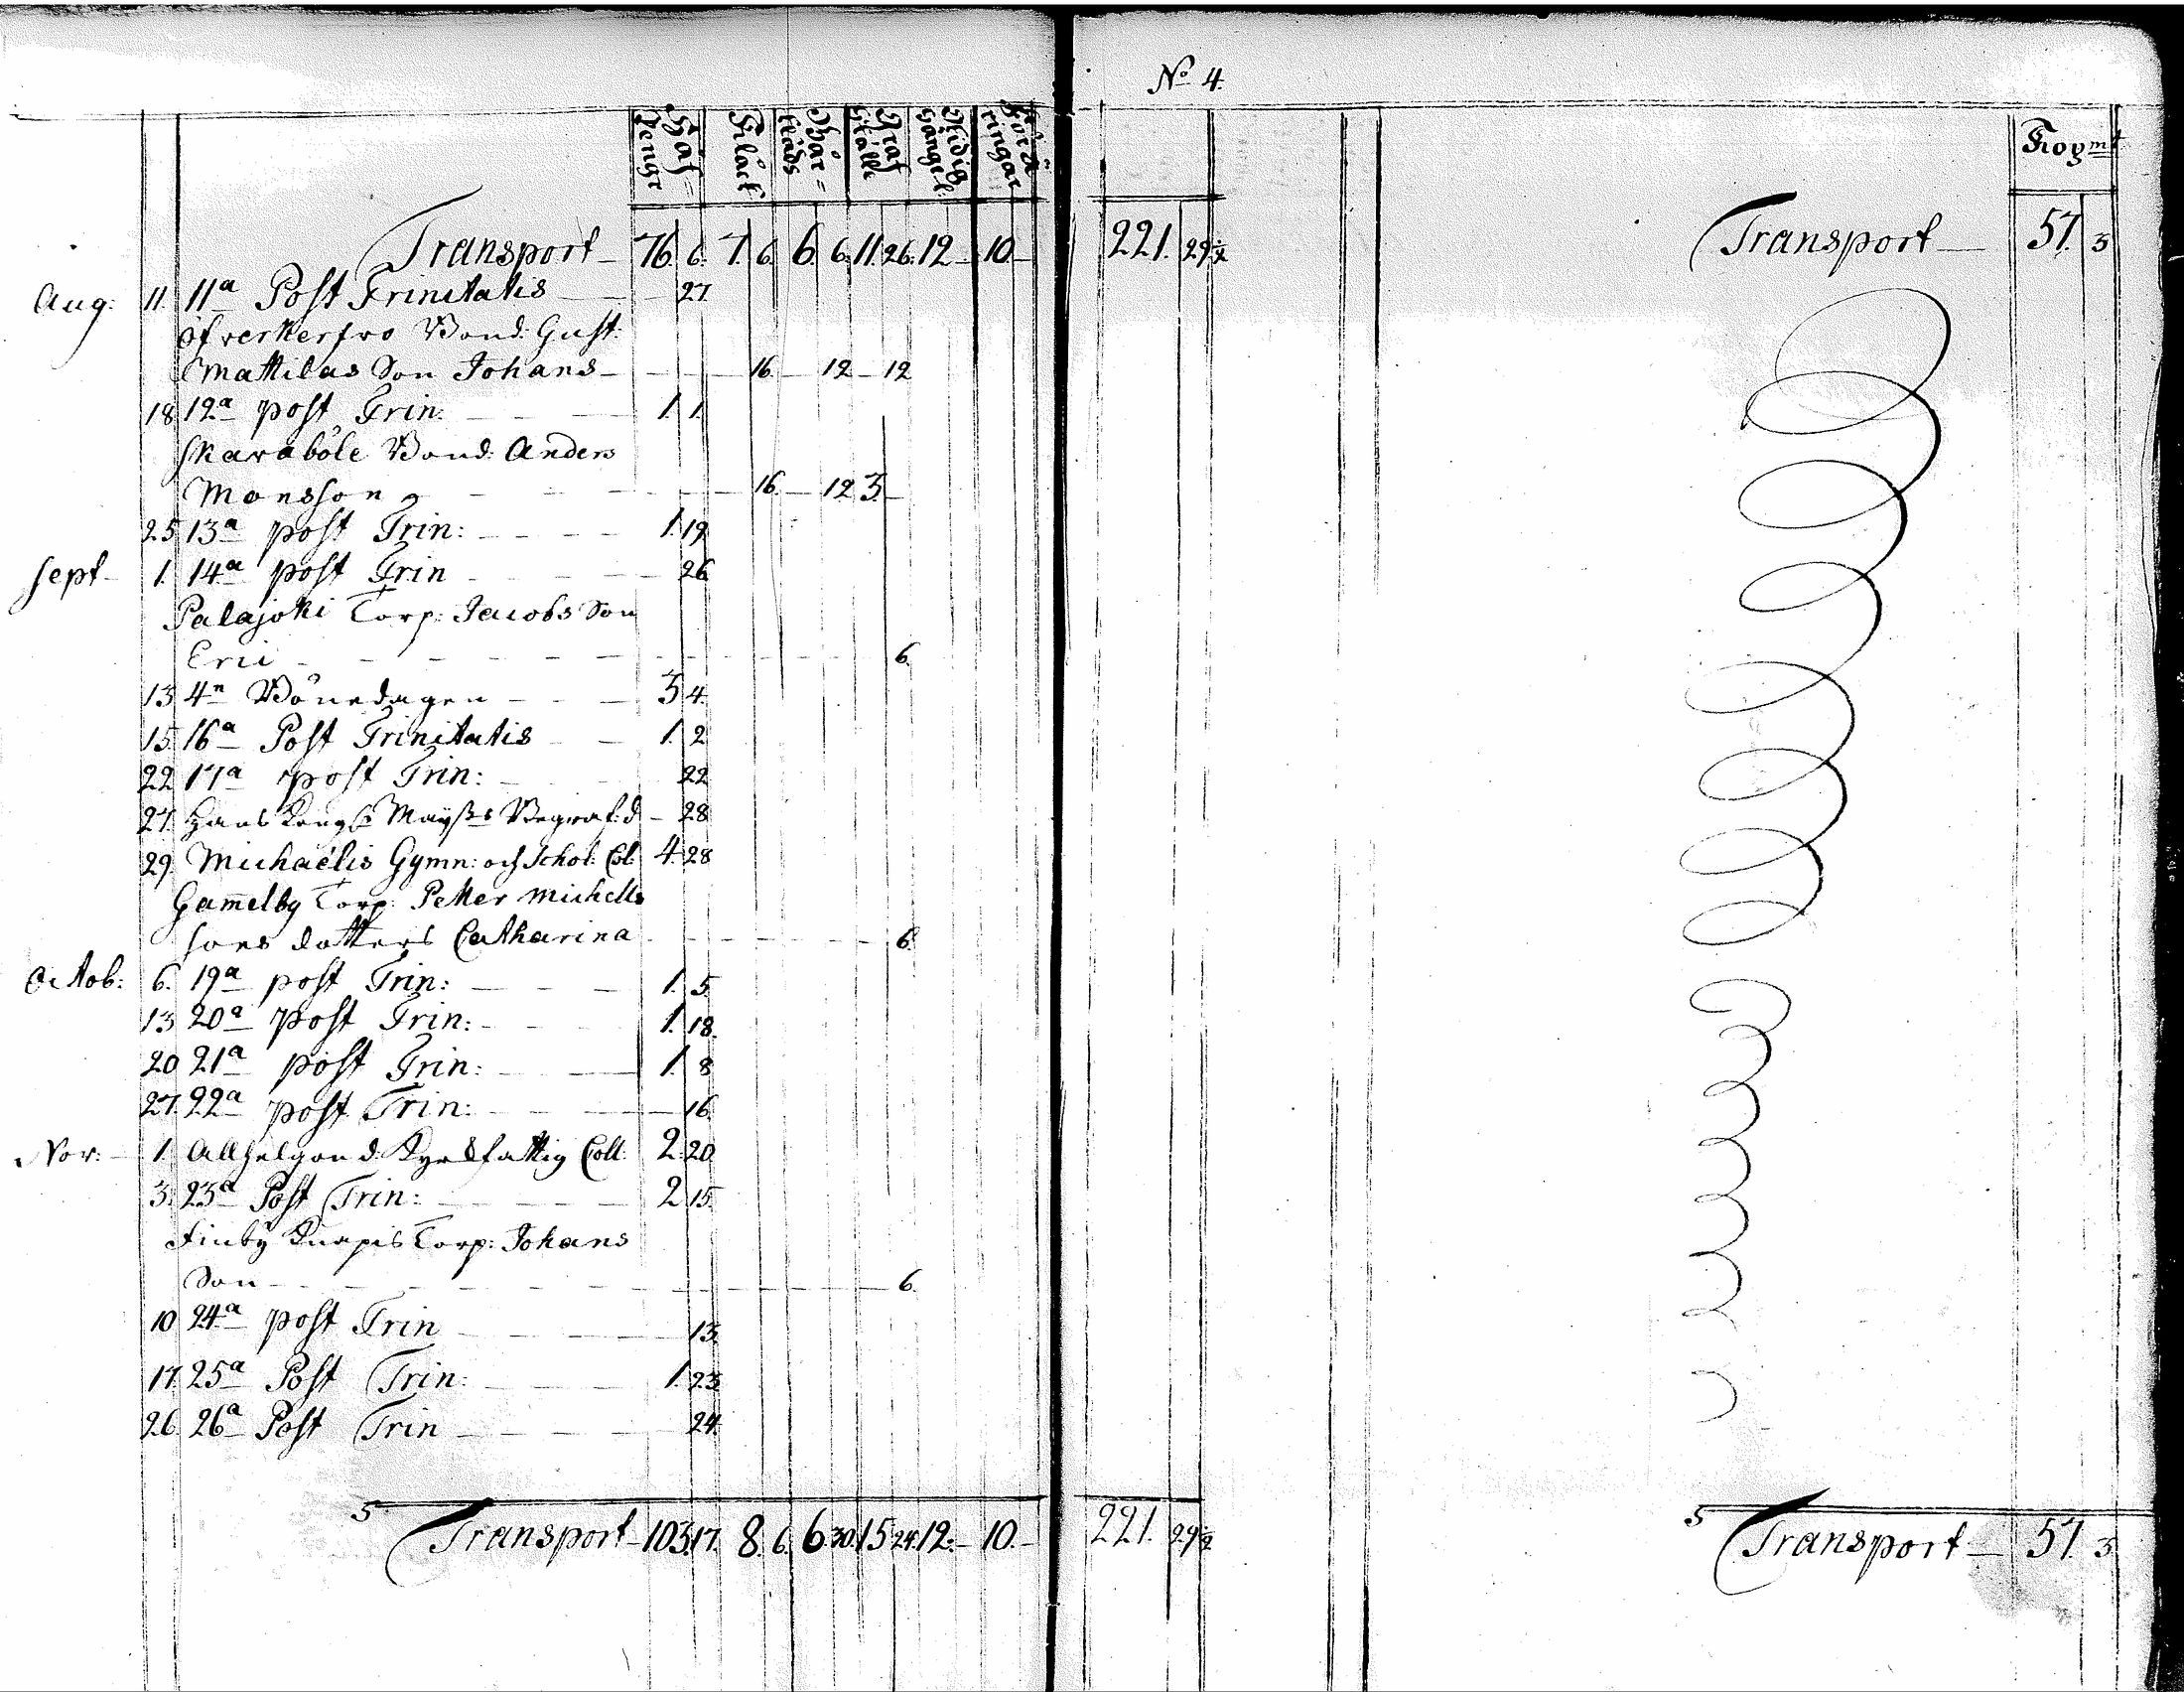 No 4.
Håf= Pengr
Bår= kläds
Graf ställe
Transport 76. 6. 7. 6. 6. 6. 11. 26. 12 10 221. 29½ Transport 57. 3
Aug: 11. 11a Post Trinitatis 27
Bond: Gust:
Mattilas Son Johans 16. 12 12
18 12a post Trin: 1. 1.
Skaraböle Bond: Anders
Monsson 16. 12 3.
25 13a post Trin: 1. 19
Sept 1. 14a post Trin 26
Palajoki Torp: Jacobs Son
Eric 6.
13 4n Bönedagen 3 4.
15 16a Post Trinitatis 1. 2
22 17a post Trin: 22
27. Hans Kongl: Mayßts Begraf: d 28
29. Michaëlis Gymn: och Schol: Col: 4. 28
Gamelby Torp: Petter Michells
sons dotters Catharina 6.
Octob: 6. 19a post Trin: 1. 5.
13 20a post Trin: 1. 18.
20 21a post Trin: 1. 8
27. 22a post Trin: 16.
Nov: 1. Allhelgon d: Kyrk fattig Coll: 2. 20
3. 23a Post Trin: 2 15.
Finby Knapis Torp: Johans
Son 6.
10 24a post Trin 13.
17. 25a Post Trin: 1. 23
26. 26a Post Trin 24.
Transport 103. 17. 8. 6. 6. 30. 15 24. 12. 10. 221. 29½ Transport 57. 3